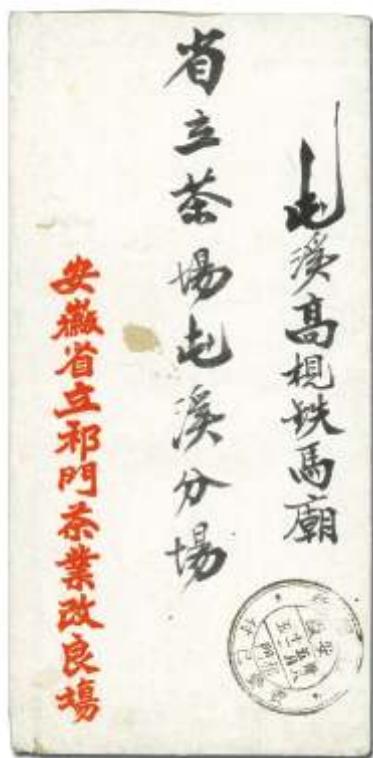 屯溪高梘鉄馬廟
省立茶場屯溪分場
安徽省立祁門茶業改良場